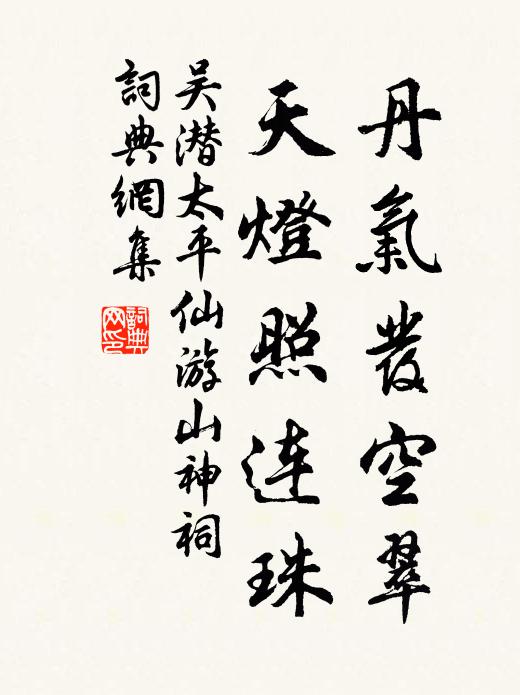 丹氣發空翠
天燈照连珠
吴潜太平仙游山神祠
詞典網集
詞典网印